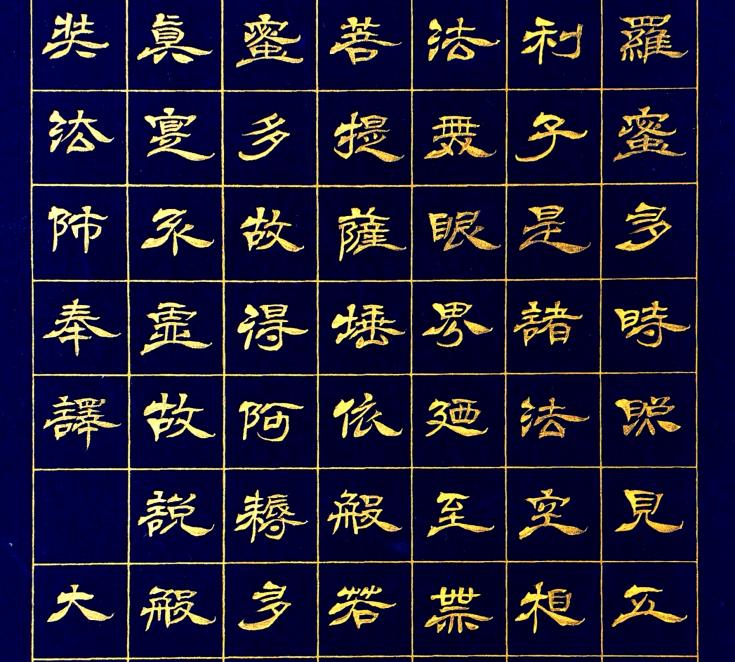 羅蜜多時照見五
利子是諸法空相
法無眼界廼至無
菩提薩埵依般若
蜜多故得阿耨多
眞寔不虛故説般
奘法師奉譯 大